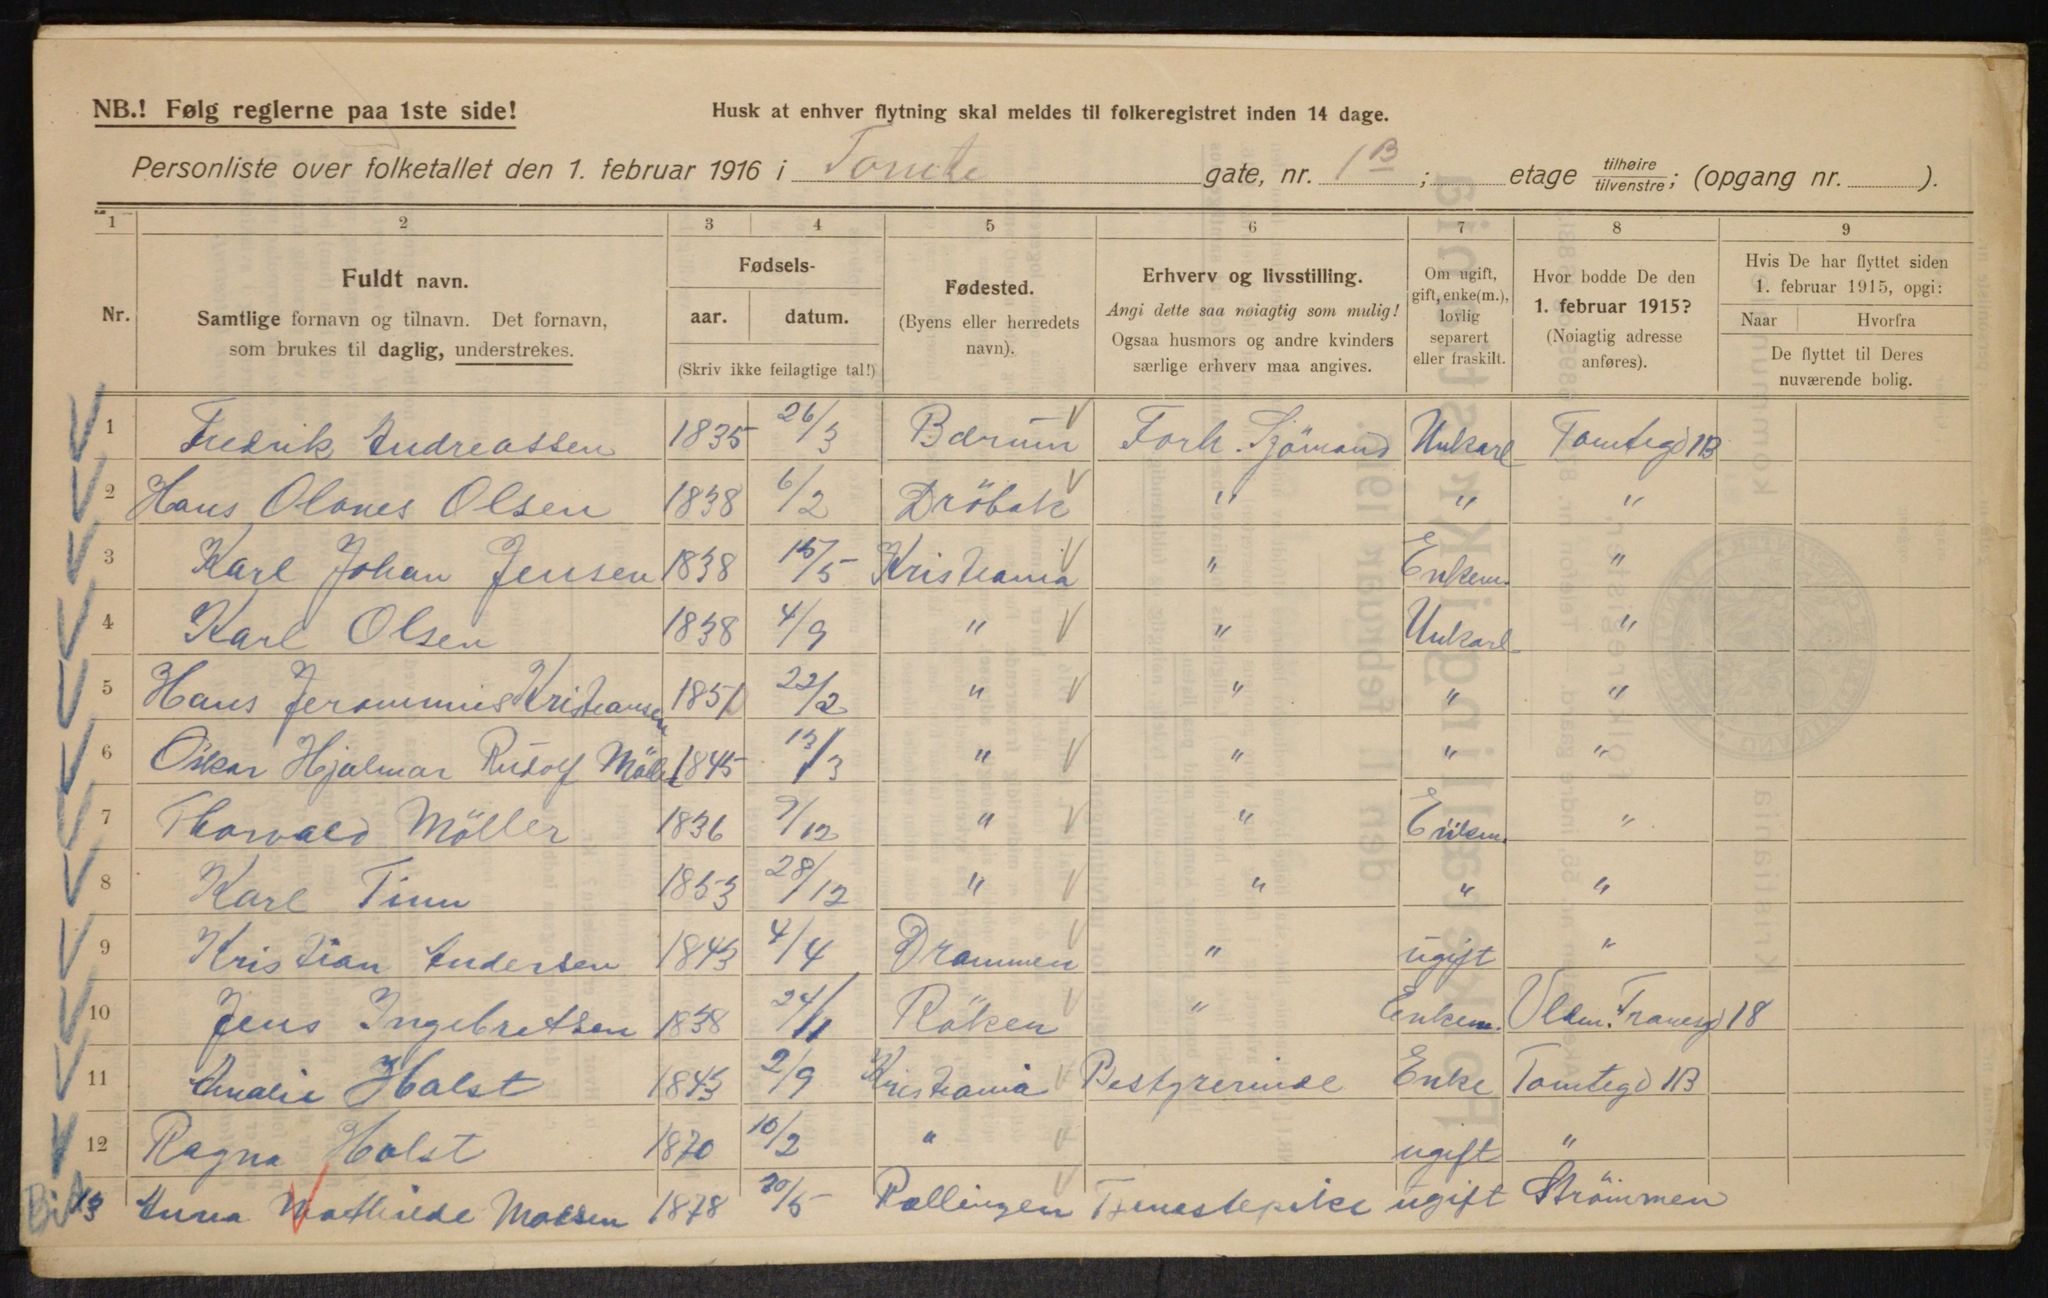 NB.! Følg reglerne paa 1ste side!
Husk at enhver flytning skal meldes til folkeregistret inden 14 dage.
Personliste over folketallet den 1. februar 1916 i Tomte gate, nr. 1B; etage tilhøire/tilvenstre; (opgang nr. ).
1 2 3 4 5 6 7 8 9
Nr.
Fuldt navn.
Samtlige fornavn og tilnavn. Det fornavn,
som brukes til daglig, understrekes.
Fødsels-
aar. datum.
(Skriv ikke feilagtige tal!)
Fødested.
(Byens eller herredets
navn).
Erhverv og livsstilling.
Angi dette saa nøiagtig som mulig!
Ogsaa husmors og andre kvinders
særlige erhverv maa angives.
Om ugift,
gift, enke(m.),
lovlig
separert
eller fraskilt.
Hvor bodde De den
1. februar 1915?
(Nøiagtig adresse
anføres).
Hvis De har flyttet siden
1. februar 1915, opgi:
Naar Hvorfra
De flyttet til Deres
nuværende bolig.
1 Fredrik Andreassen 1835 26/3 Bærum Forh. Sjömand Unkarl Tomtegd 1B
2 Hans Olaves Olsen 1838 6/2 Dröbak " " "
3 Karl Johan Jensen 1838 15/5 Kristiania " Enkem. "
4 Karl Olsen 1838 4/9 " " Unkarl "
5 Hans Jerommus Kristiansen 1851 22/2 " " " "
6 Oskar Hjalmar Rudolf Möller 1845 13/3 " " " "
7 Thorvald Möller 1836 9/12 " " Enkem. "
8 Karl Tinn 1853 28/12 " " " "
9 Kristian Andersen 1843 4/4 Drammen " ugift "
10 Jens Ingebretsen 1838 24/11 Röken " Enkem. Vldm. Tranesgd 18
11 Amalie Holst 1843 2/9 Kristiania Bestyrerinde Enke Tomtegd 1B
12 Ragna Holst 1870 10/2 " ugift "
13 Anna Mathilde Madsen 1878 30/5 Rællingen Tjenestepike ugift Strömmen